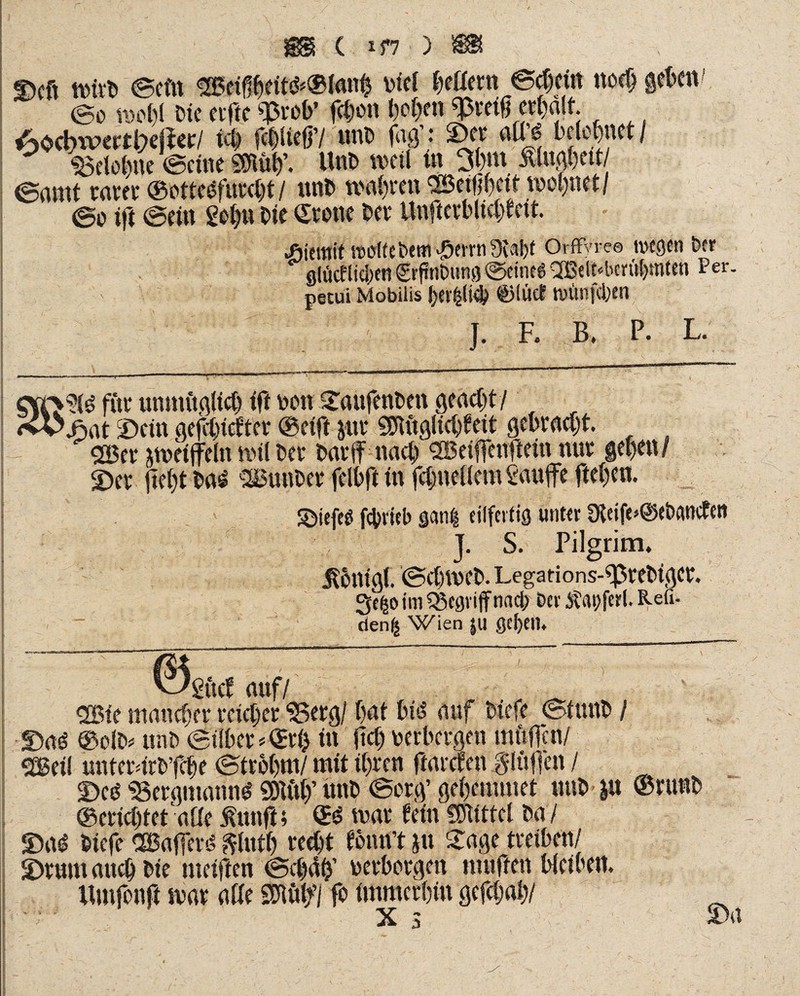 ( 157 )
Deß wird Sein Weißheits-Glantz viel hellern Schein noch geben
So wohl die erste Prob' schon hohen Preiß erhält.
Hochwerthester/ ich schließ'/ und sag': Der all's belohnet/
Belohne Seine Müh'. Und weil in Ihm Klugheit/
Samt rarer Gottesfurcht/ und wahren Weißheit wohnet/
So ist Sein Lohn die Crone der Unsterblichkeit.
Hiemit wolte dem Herrn Raht Orffyreo wegen der
glücklichen Erfindung Seines Welt-berühmten Per-
petui Mobilis hertzlich Glück wünschen
J. F. B. P. L.
WAs für unmüglich ist von Tausenden geacht/
Hat Dein geschickter Geist zur Müglichkeit gebracht.
Wer zweiffeln wil der darff nach Weissenstein nur gehen/
Der sieht das Wunder selbst in schnellem Lauffe stehen.
Dieses schrieb gantz eilfertig unter Reise-Gedancken
J. S. Pilgrim.
Königl. Schwed. Legations-Prediger.
Jetzo im Begriff nach der Kayserl. Resi-
dentz Wien zu gehen.
GLück auf/
Wie mancher reicher Berg/ hat bis auf diese Stund /
Das Gold- und Silber-Ertz in sich verbergen müssen/
Weil unter-ird'sche Ströhm/ mit ihren starcken Flüssen /
Des Bergmanns Müh' und Sorg' gehemmet und zu Grund
Gerichtet alle Kunst; Es war kein Mittel da /
Das diese Wassers Fluth recht könn't zu Tage treiben/
Drum auch die meisten Schätz' verborgen musten bleiben.
Umsonst war alle Müh'/ so immerhin geschah/
X 3 Da